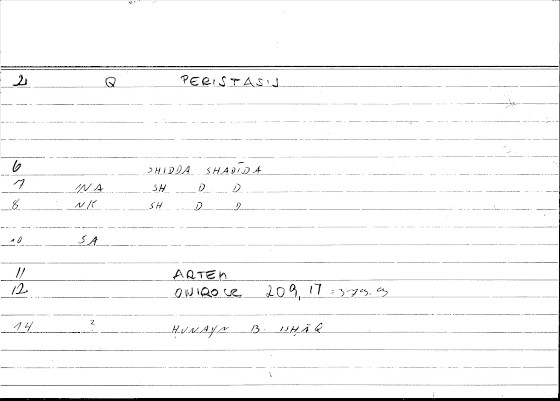 2 Q PERISTASIS
6 SHIDDA SHADĪDA
7 NA SH D D
8 NK SH D D
10 SA
11 ARTEM
12 ONIROCR 209, 17
14 ? ḤUNAYN B. ISḤĀQ